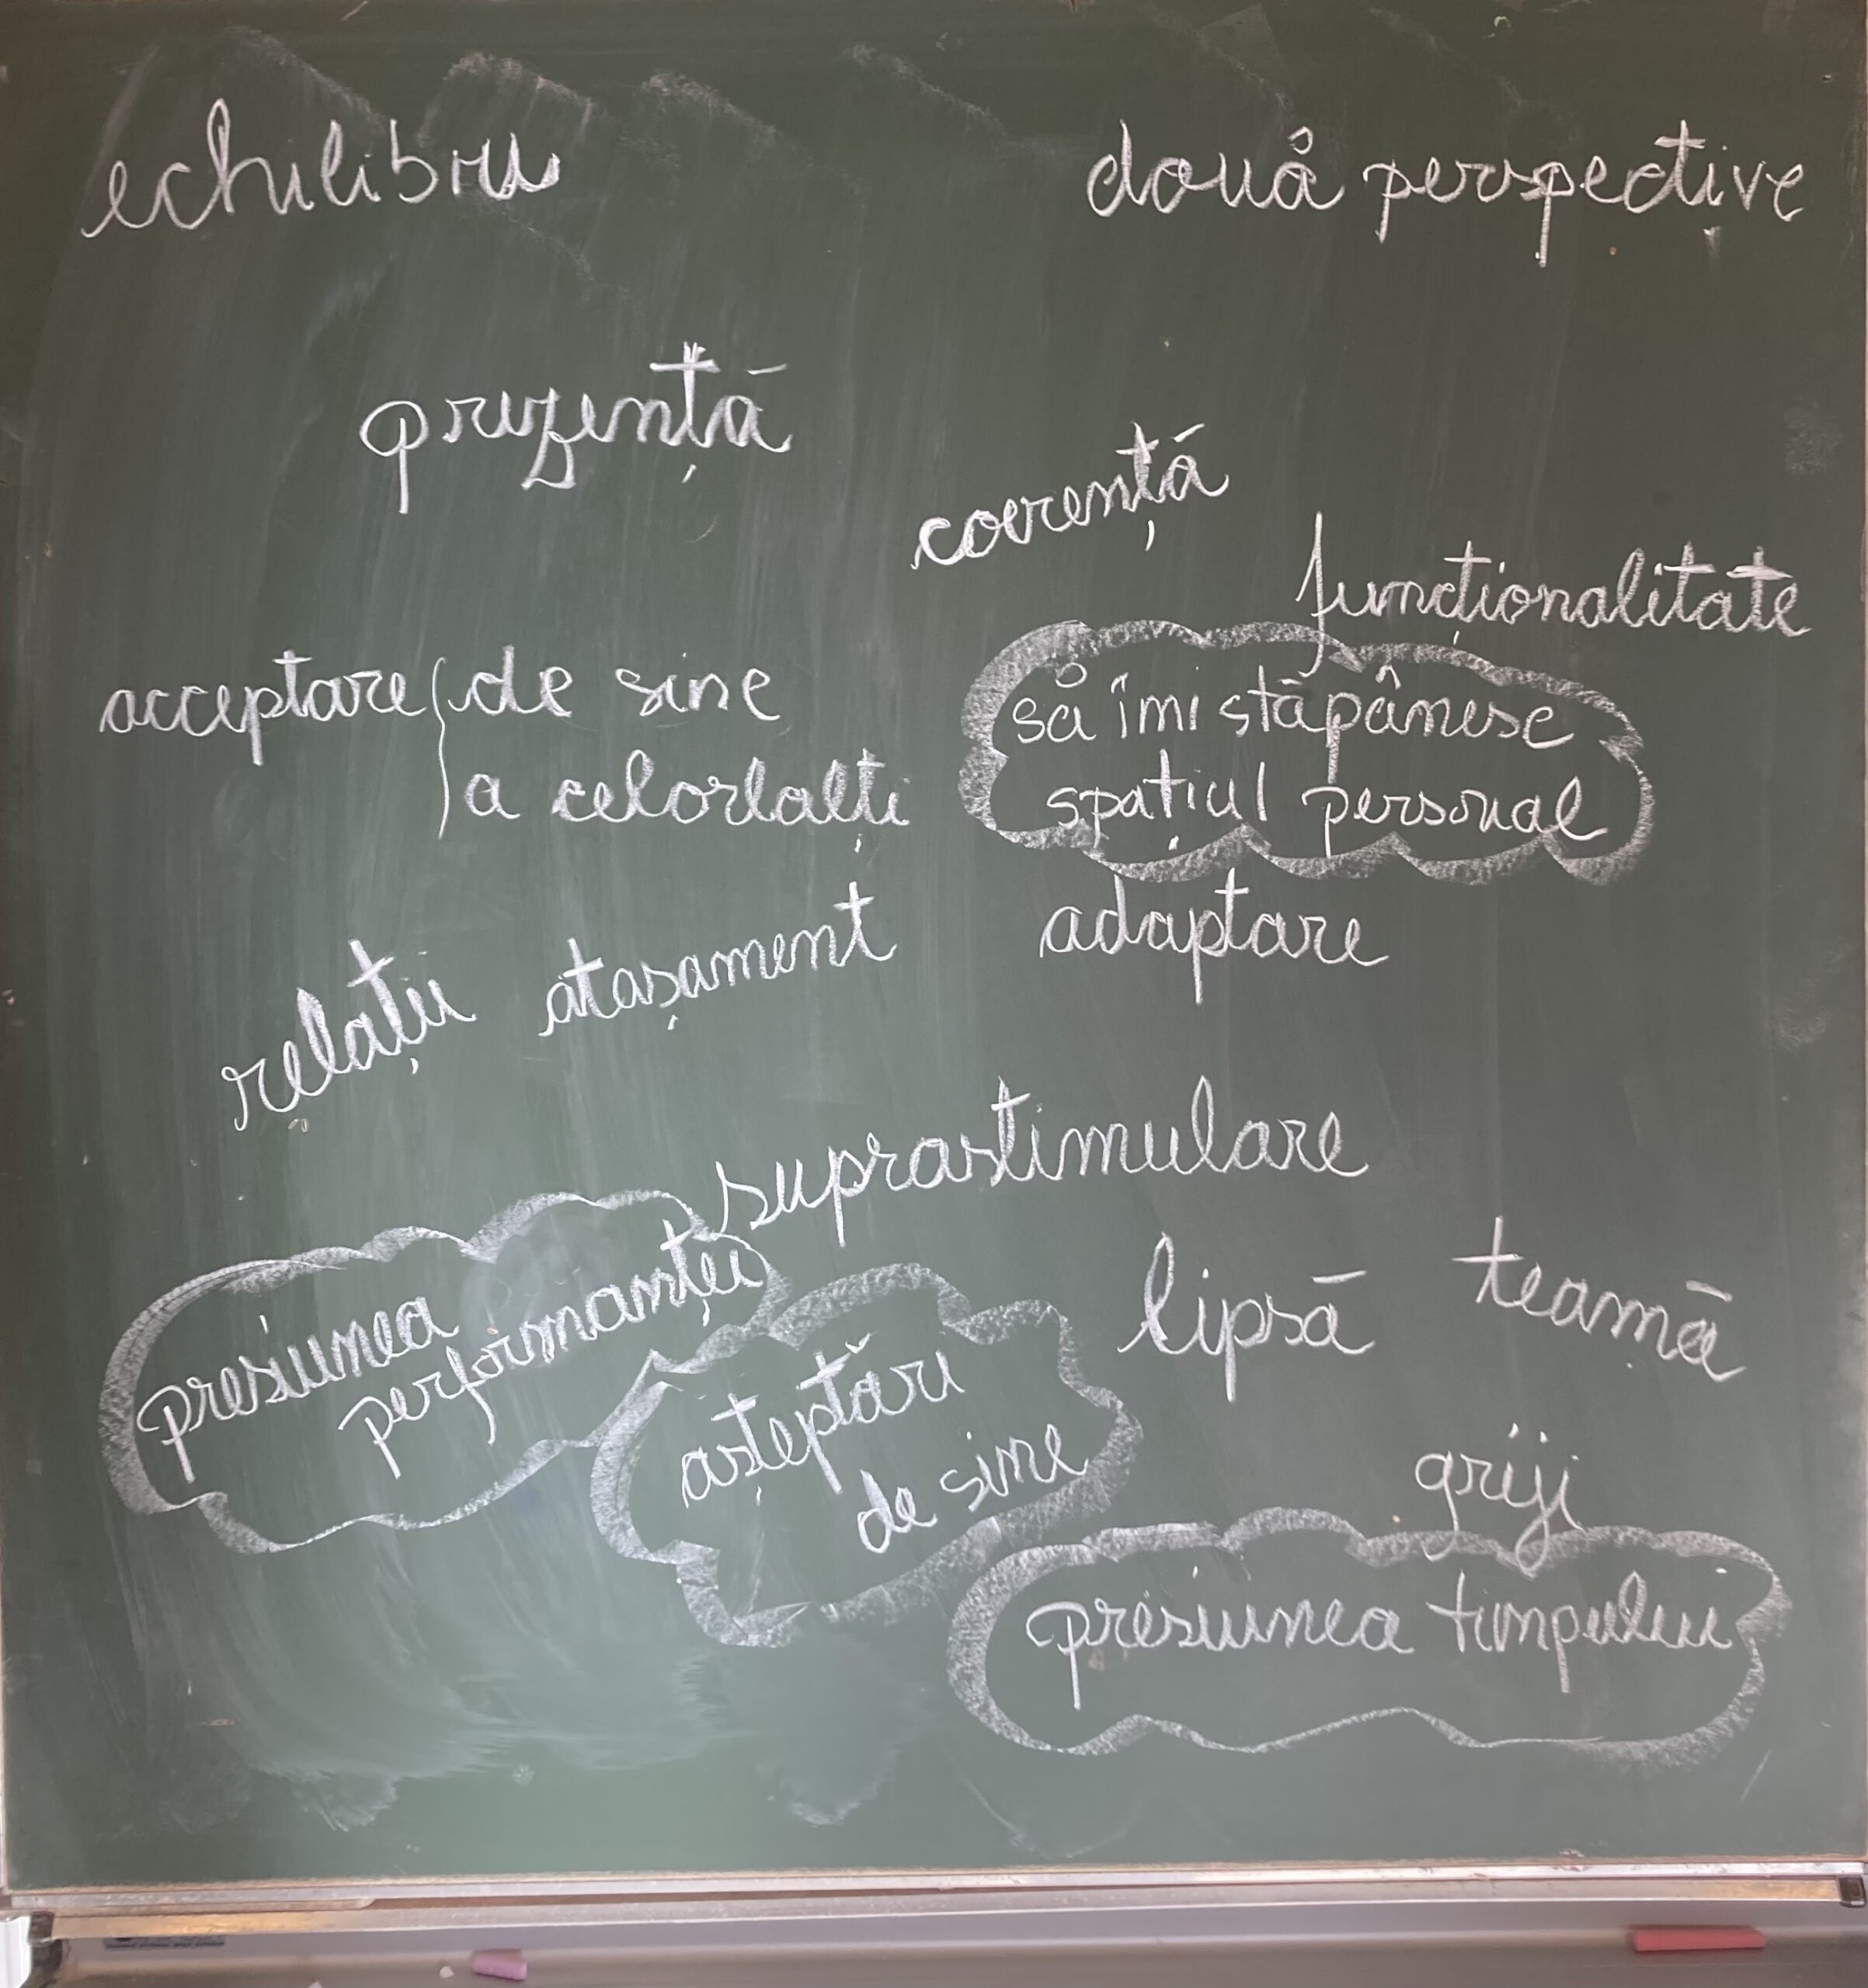 echilibru
două perspective
prezență
coerență
funcționalitate
acceptare de sine
a celorlalți
să îmi stăpânesc
spațiul personal
adaptare
relații atașament
suprastimulare
presiunea
performanței
lipsă
teamă
așteptări
de sine
griji
presiunea timpului